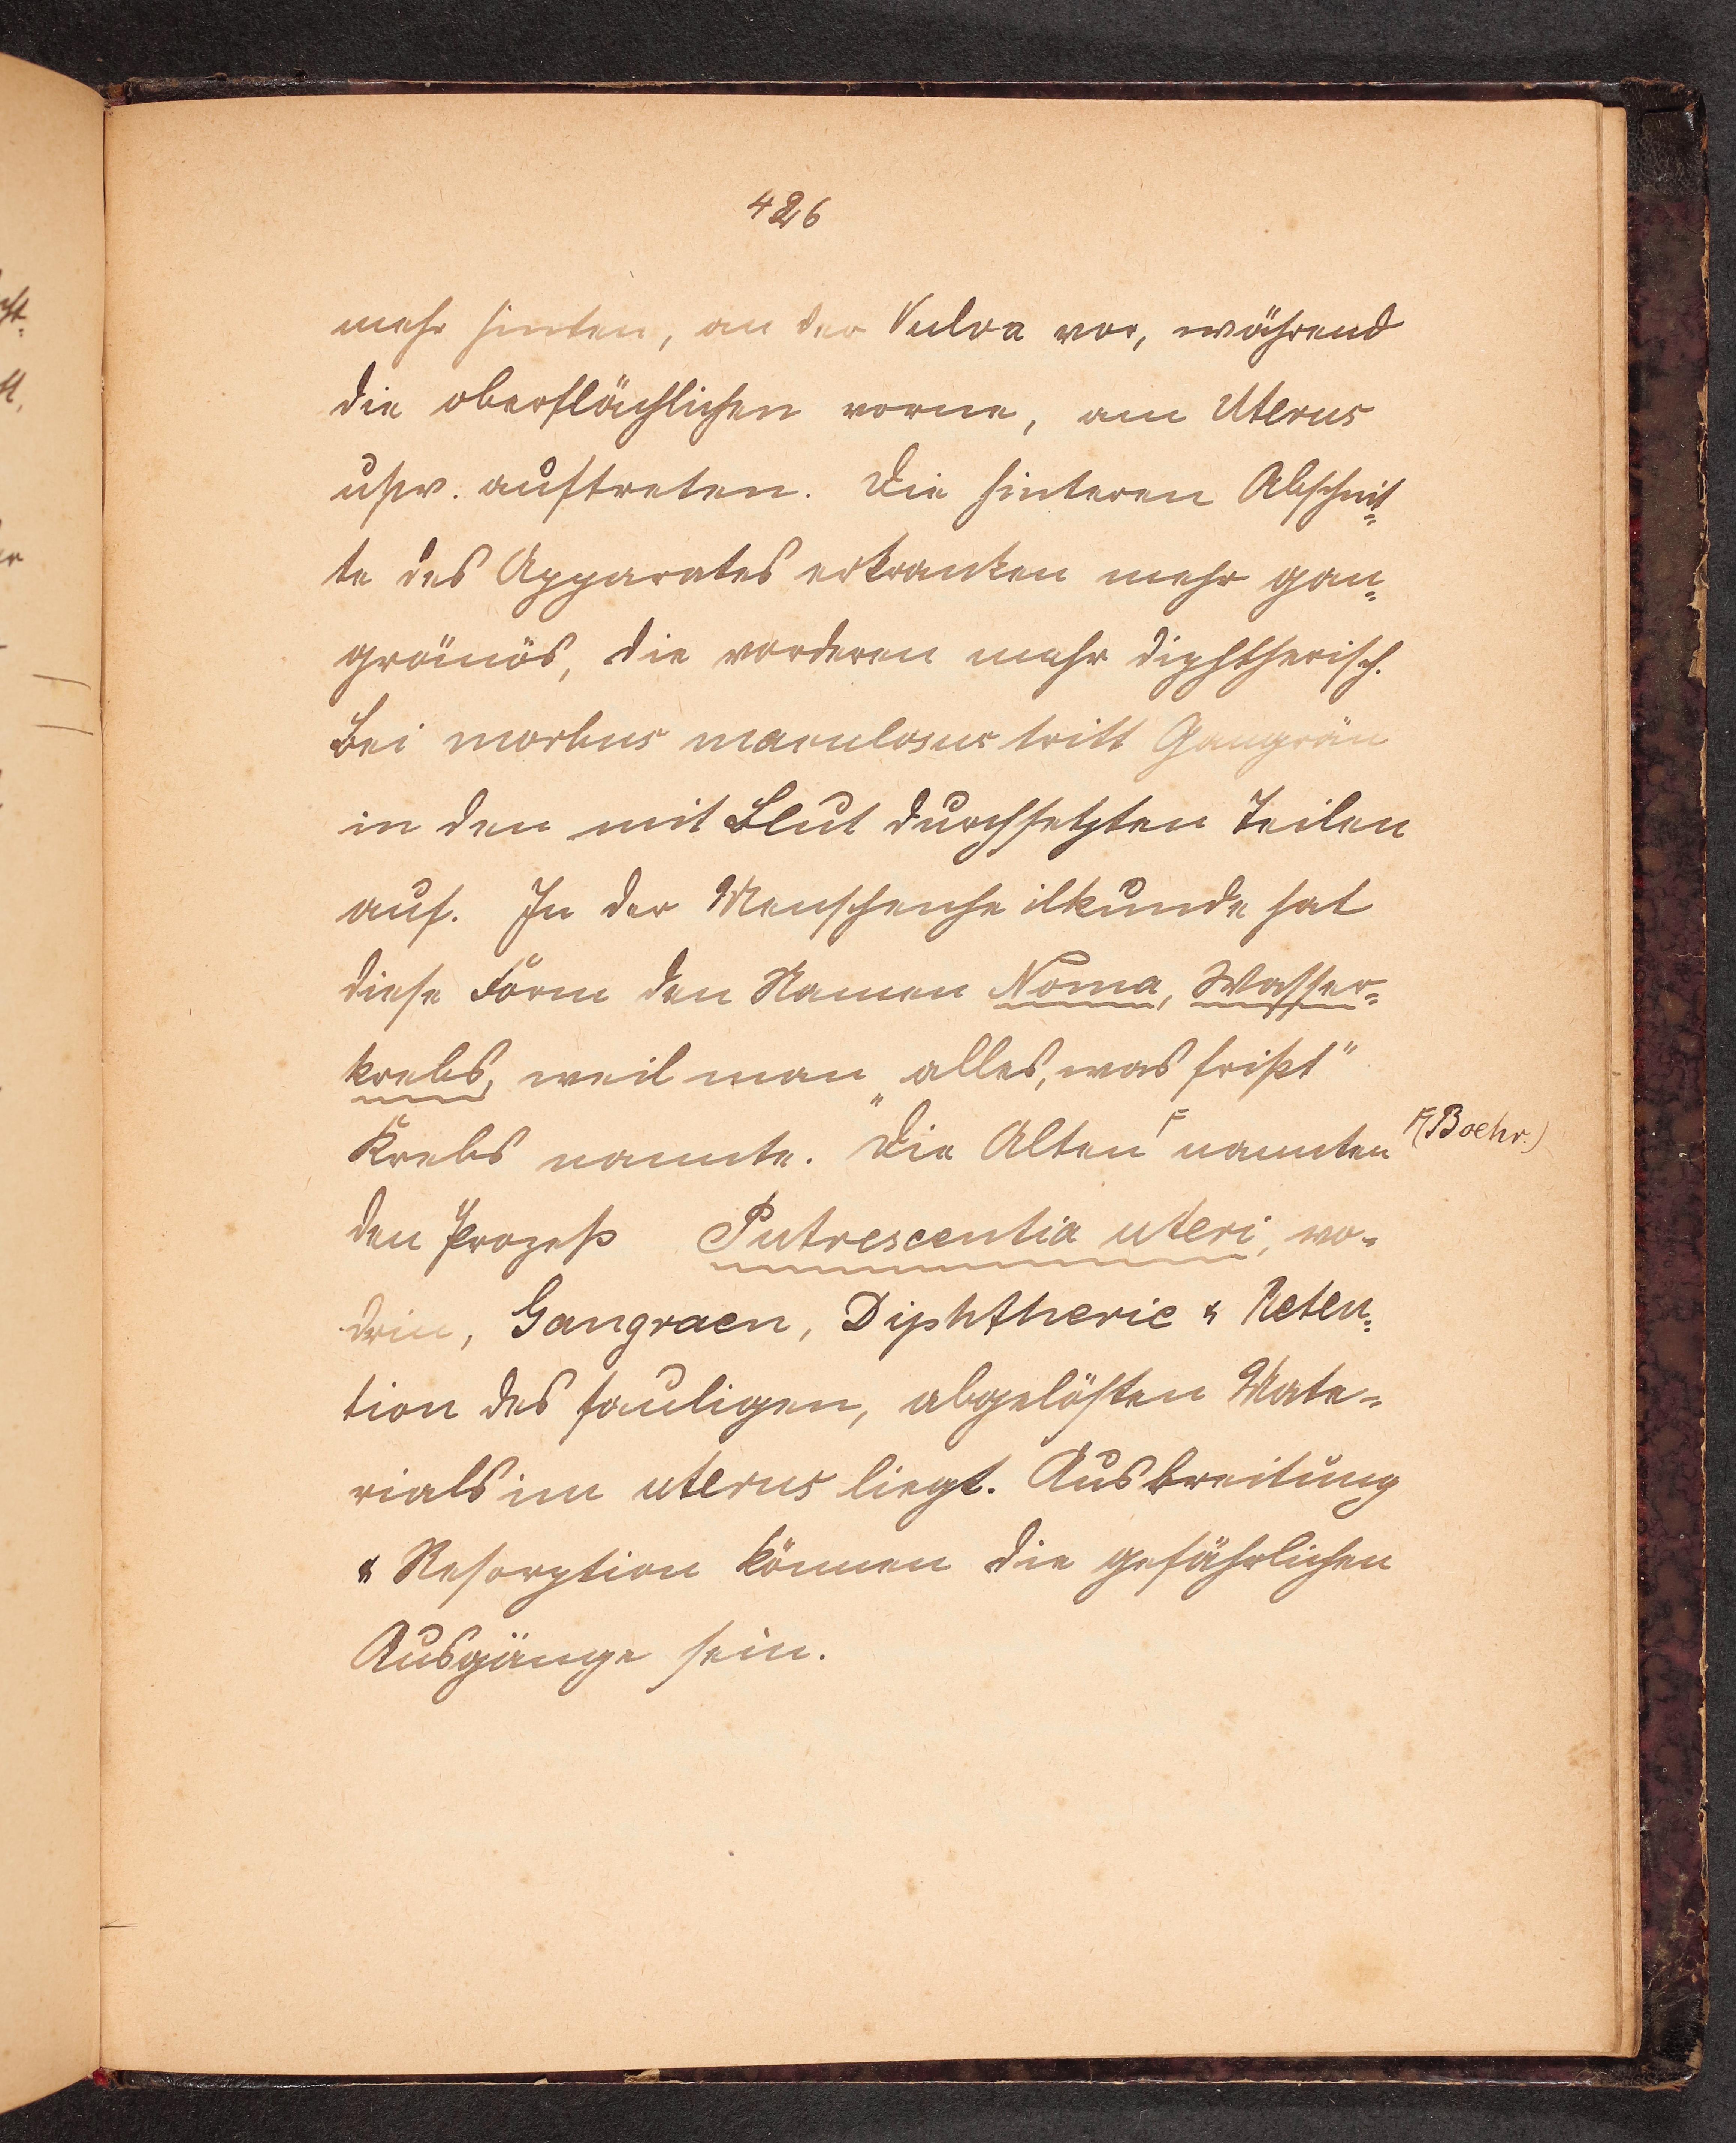 426
mehr hinten, an der Vulva vor, während
die oberflächlichen vorne, am Uterus
usw. auftreten. Die hinteren Abschnit=
te des Apparates erkranken mehr gan=
gränös, die vorderen mehr diphtherisch.
Bei morbus maculosus tritt Gangrän
in den mit Blut durchsetzten Teilen
auf. In der Menschenheilkunde hat
diese Form den Namen Noma, Wasser=
krebs, weil man „alles, was frißt"
Krebs nannte. Die Alten ⌜ nannten ⌜(Boehr.)
den Prozeß Putrescentia uteri, wo=
drin, Gangraen, Diphtherie & Reten=
tion des fauligen, abgelösten Mate=
rials im uterus liegt. Ausbreitung
& Resorption können die gefährlichen
Ausgänge sein.